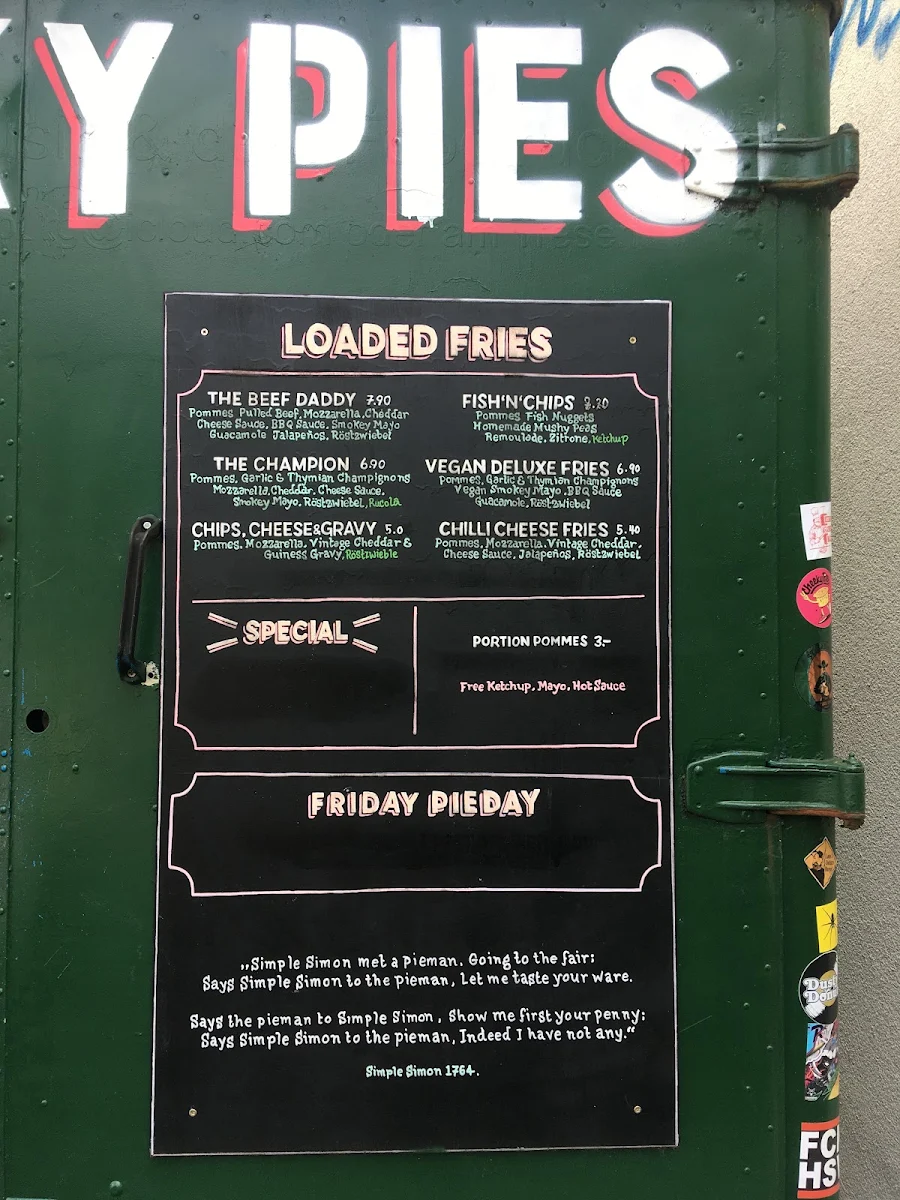 Y PIES
LOADED FRIES
THE BEEF DADDY 7.90
Pommes Pulled Beef, Mozzarella, Cheddar
Cheese Sauce, BBQ Sauce, Smokey Mayo
Guacamole Jalapeños, Röstzwiebel
THE CHAMPION 6.90
Pommes, Garlic & Thymian Champignons
Mozzarella, Cheddar, Cheese Sauce,
Smokey Mayo, Röstzwiebel, Rucola
CHIPS, CHEESE&GRAVY 5.0
Pommes, Mozzarella, Vintage Cheddar &
Guiness Gravy, Röstzwieble
FISH'N'CHIPS
Pommes Fish Nuggets
Homemade Mushy Peas
Remoulade, Zitrone, Ketchup
VEGAN DELUXE FRIES 6.90
Pommes, Garlic & Thymian Champignons
Vegan Smokey Mayo, BBQ Sauce
Guacamole, Röstzwiebel
CHILLI CHEESE FRIES 5.40
Pommes, Mozzarella, Vintage Cheddar,
Cheese Sauce, Jalapeños, Röstzwiebel
SPECIAL
PORTION POMMES 3.–
Free Ketchup, Mayo, Hot Sauce
FRIDAY PIEDAY
„Simple Simon met a pieman. Going to the fair;
Says Simple Simon to the pieman, Let me taste your ware.
Says the pieman to Simple Simon, Show me first your penny;
Says Simple Simon to the pieman, Indeed I have not any."
Simple Simon 1764.
Dust
Don
FC
HS